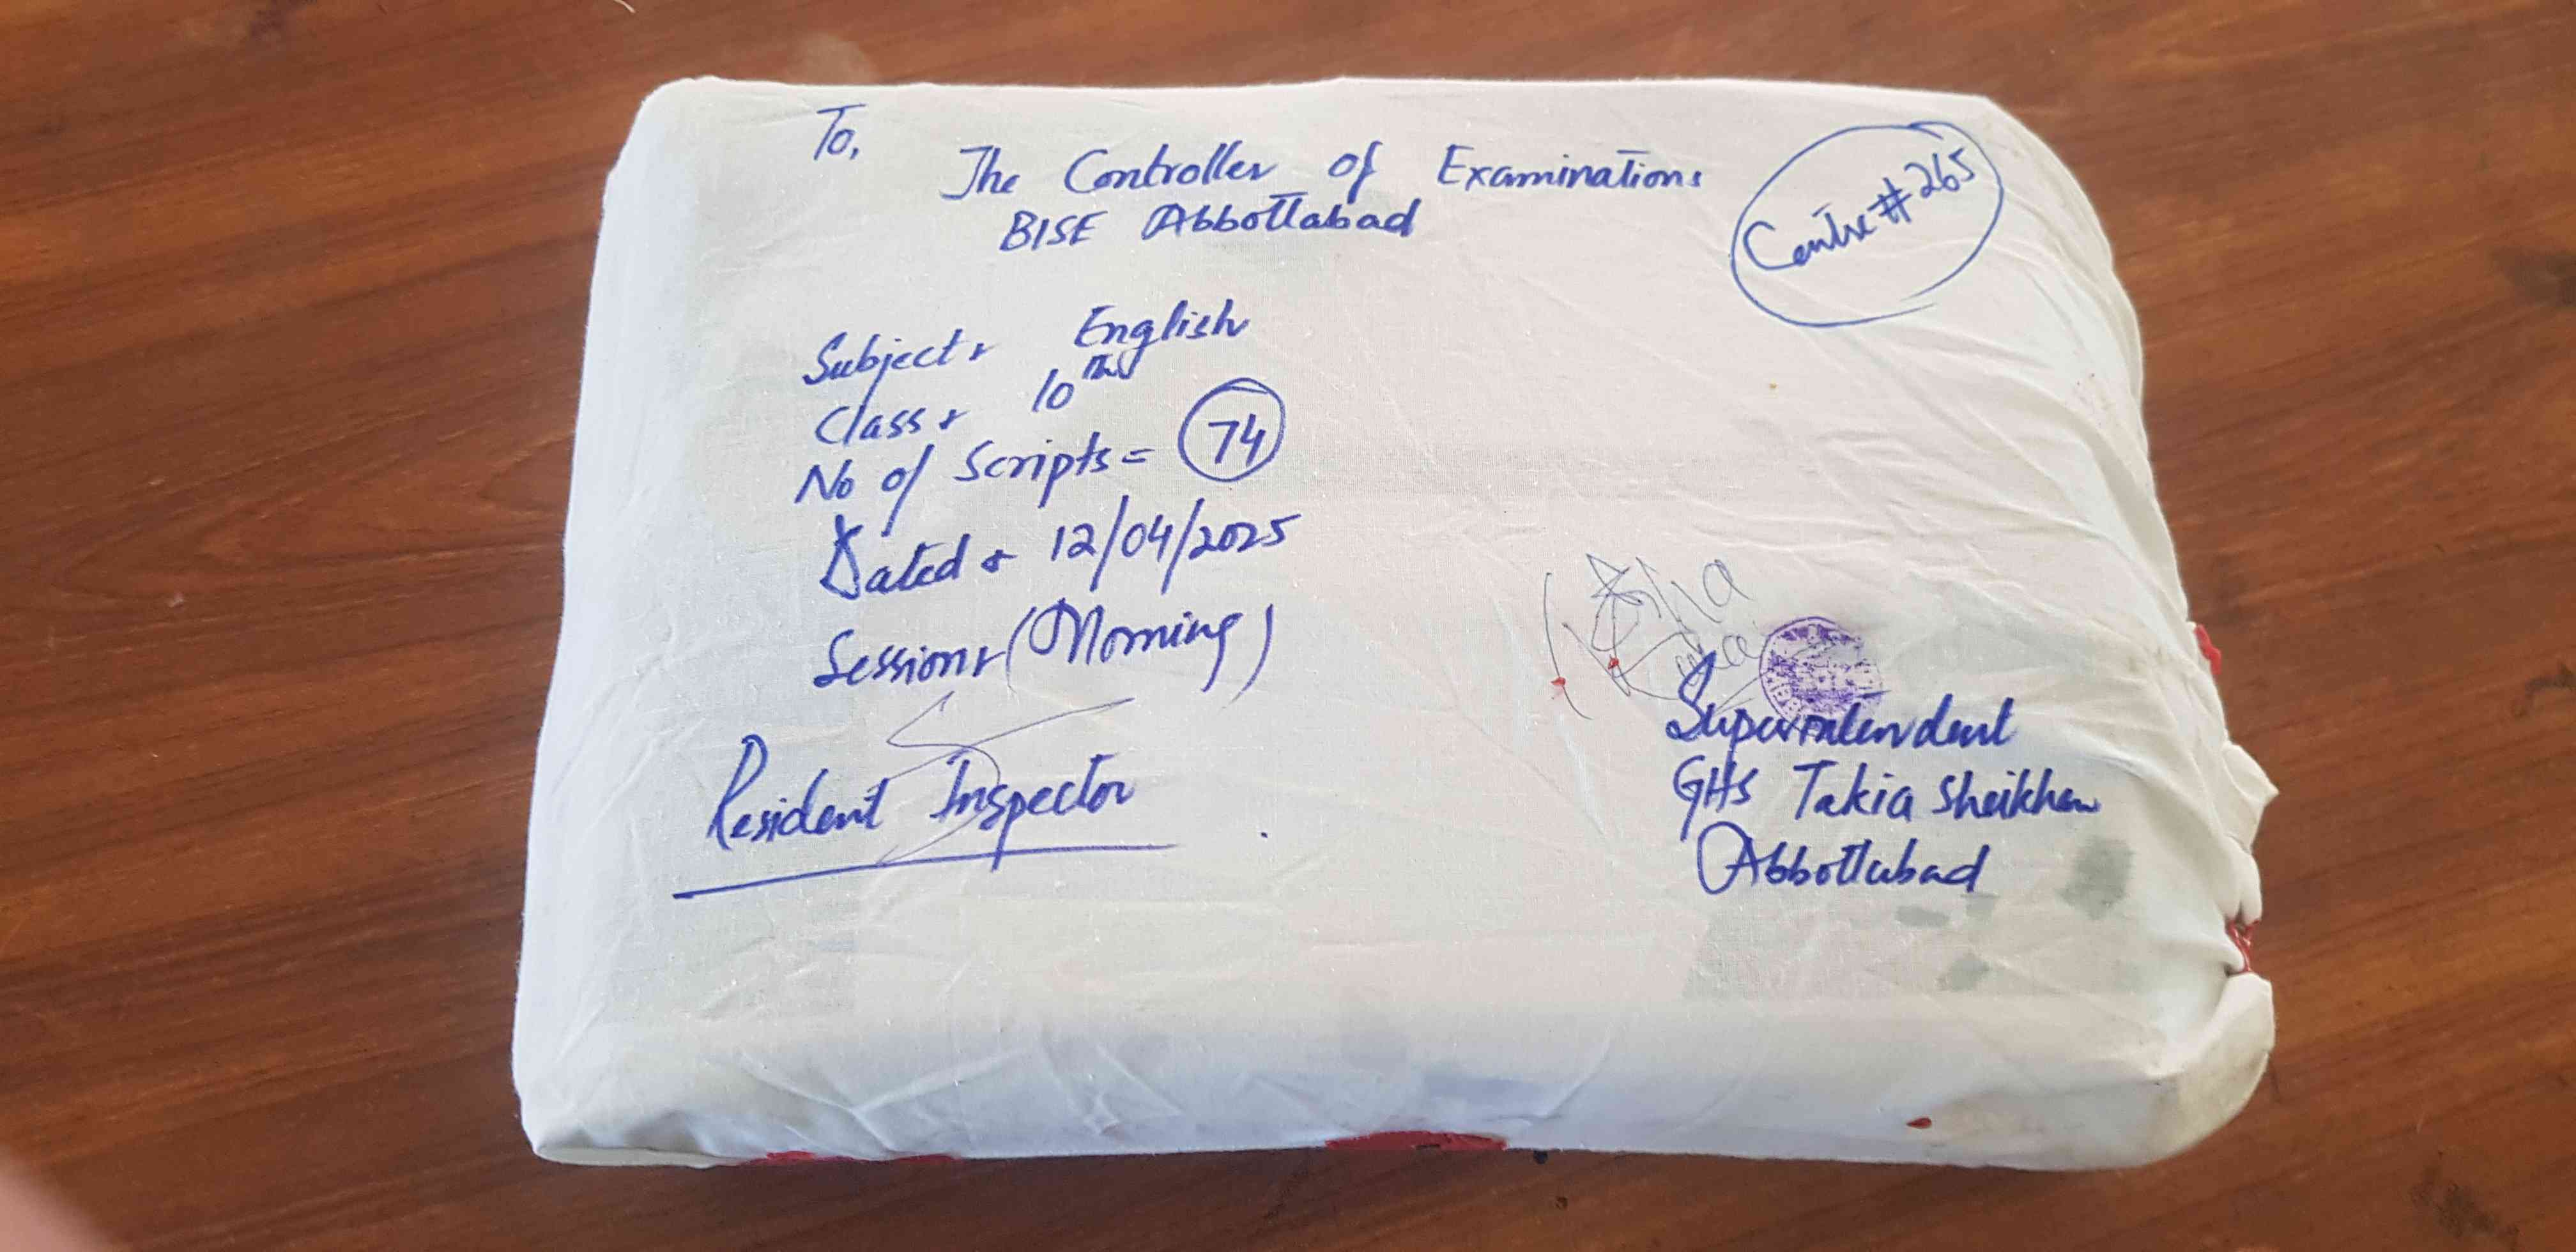 To,
The Controller of Examinations
BISE Abbottabad
Centre # 265
Subject: English
Class: 10th
No of Scripts = 74
Dated: 12/04/2025
Session: (Morning)
Resident Inspector
Superintendent
GHS Takia Sheikhan
Abbottabad